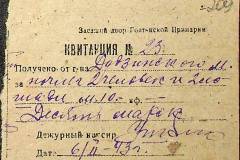 209
Заезжий двор Голтянской Примарии
КВИТАНЦИЯ № 23
Получено от г-на Довзинского М.
за ночлег 2 человек и 2 лошади
Десять марок
Дежурный кассир
Дата 6/II-43 г.